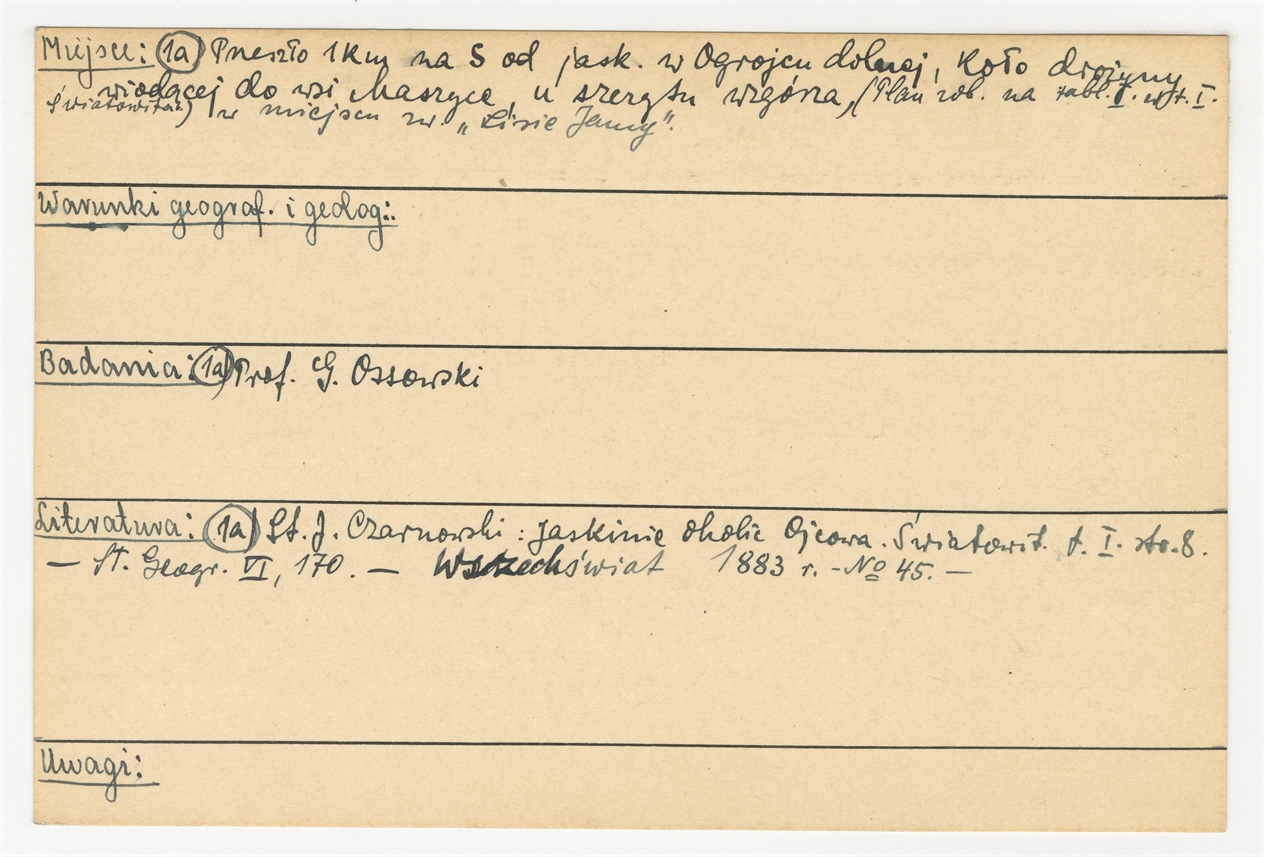 Miejsce: (1a) Przeszło 1 km na S od jask. w Ogrojcu dolnej, koło drożyny
wiodącej do wsi Maszyce, u szczytu wzgórza, (Plan rob. na tabl. I. w t. I.
Światowita) w miejscu zw. „Lisie Jamy".
Warunki geograf. i geolog:.
Badania: (1a) Prof. G. Ossowski
Literatura: (1a) St. J. Czarnowski: Jaskinie okolic Ojcowa. Światowit. t. I. str. 8.
— Sł. Geogr. VI, 170. — Wszechświat 1883 r. - No 45. —
Uwagi: